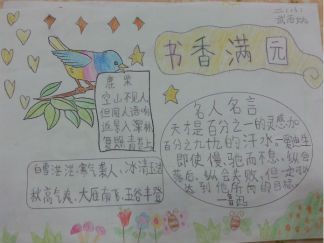 书香满园
鹿柴
空山不见人
但闻人语响
返景入深林
复照青苔上
名人名言
天才是百分之一的灵感加
百分之九十九的汗水—爱迪生
即使慢,驰而不息,纵会
落后,纵会失败,但一定可以
达到他所向的目标。
—鲁迅
秋高气爽、大雁南飞、五谷丰登